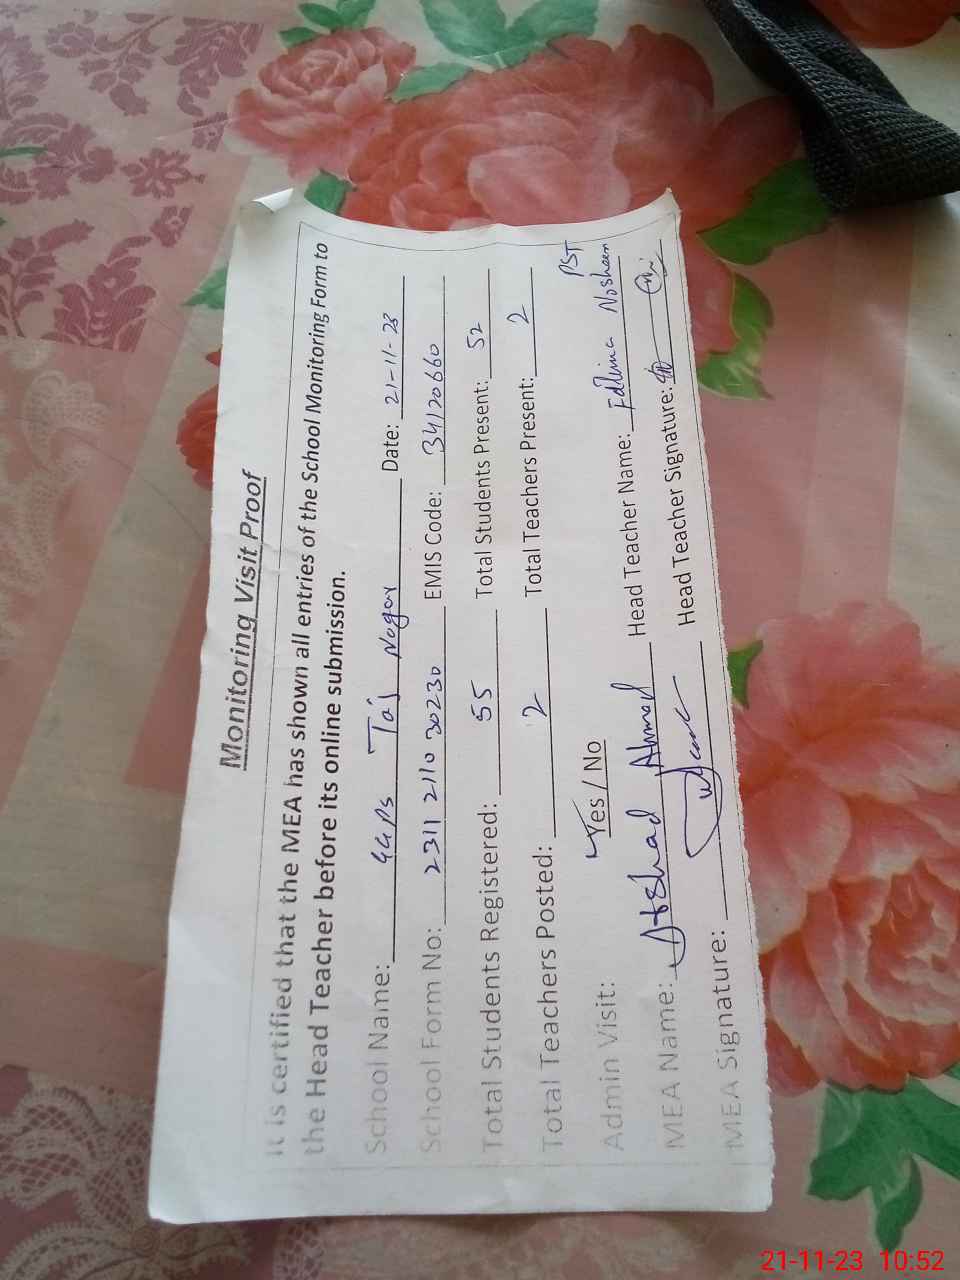 Monitoring Visit Proof
It is certified that the MEA has shown all entries of the School Monitoring Form to
the Head Teacher before its online submission.
School Name: GGPS Taj Nagar Date: 21-11-23
School Form No: 2311 2110 30230 EMIS Code: 34120660
Total Students Registered: 55 Total Students Present: 52
Total Teachers Posted: 2 Total Teachers Present: 2
Admin Visit: Yes / No PST
MEA Name: Arshad Ahmad Head Teacher Name: Nosheen
MEA Signature: Head Teacher Signature:
21-11-23 10:52